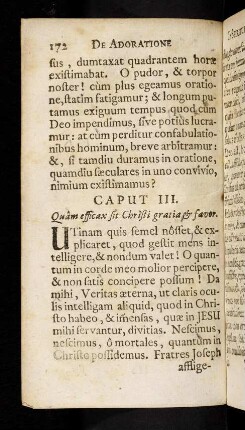 172 DE ADORATIONE
sus, dumtaxat quadrantem horæ
existimabat. O pudor, & torpor
noster! cùm plus egeamus oratio-
ne, statim fatigamur; & longum pu-
tamus exiguum tempus, quod cum
Deo impendimus, sive potiùs lucra-
mur: at cùm perditur confabulatio-
nibus hominum, breve arbitramur:
&, si tamdiu duramus in oratione,
quamdiu sæculares in uno convivio,
nimium existimamus?
CAPUT III.
Quàm efficax sit Christi gratia & favor.
UTinam quis semel nôsset, & ex-
plicaret, quod gestit mens in-
telligere, & nondum valet! O quan-
tum in corde meo molior percipere,
& non satis concipere possum! Da
mihi, Veritas æterna, ut claris ocu-
lis intelligam aliquid, quod in Chri-
sto habeo, & imẽnsas, quæ in JESU
mihi servantur, divitias. Nescimus,
nescimus, ô mortales, quantum in
Christo possidemus. Fratres Joseph
afflige-